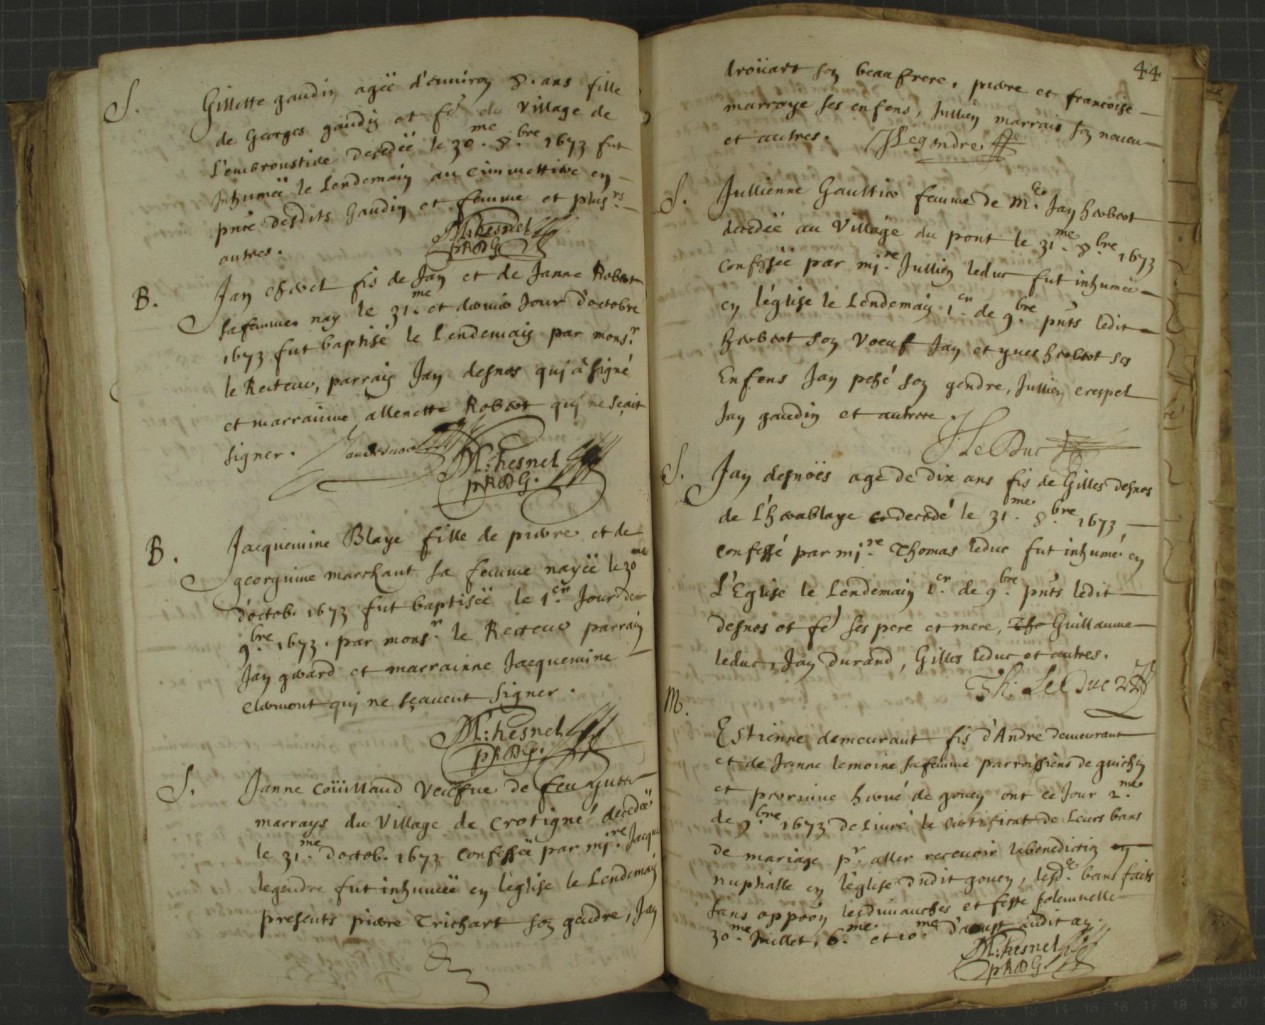 S. Gillette gaudin agée d'environ 8. ans fille
de Georges gaudin et fe du village de
Lembroustiere decedée le 30.me 8.bre 1673 fut
Inhumée le Lendemain au cimmettiere en
pnce desdits Gaudin et femme et plus.rs
autres.
M: hesnel
pRDG
B. Jan fis de Jan et de Janne Robert
sa femme nay le 31.me et dernier Jour d'octobre
1673 fut baptisé le Lendemain par mons.r
le Recteur, parrain Jan desnos qui a signé
et marrainne allenette Robert qui ne sçait
signer.
M: hesnel
pRDG.
B. Jacquemine Blaye fille de pierre et de
georginne marchant sa femme nayée le 30me
d'octob. 1673 fut baptisée le 1.er Jour de
9.bre 1673. par mons.r le Recteur parrain
Jan gerard et marrainne Jacquemine
clermont qui ne sçavent signer.
M: hesnel
pRDG.
S. Janne coüillaud Veufve de feu
marrays du Village de Crotigné decedée
le 31.me d'octob. 1673 confessée par mi.re Jacque
legendre fut inhumée en l'eglise le Lendemain
presents pierre Trichart son gendre, Jan
44
droüart son beaufrere, pierre et francoise
marraye ses enfens, Jullien marrais son neveu
et autres. J Legendre
S. Jullienne Gaultier femme de M.e Jan herbert
decedée au Village du pont le 31.me 8.bre 1673
confessée par mi.re Jullien leduc fut inhumée
en l'église le Lendemain 1.er de 9.bre pnts ledit
herbert son Voeuf Jan et yves herbert ses
Enfens Jan peché son gendre, Jullien crespel
Jan gaudin et autres.
J Le Duc
S. Jan desnoës age de dix ans fis de Gilles desnos
de L'herablaye decedé le 31.me 8.bre 1673
confessé par mi.re Thomas leduc fut inhumé en
L'Eglise le Lendemain 1.er de 9.bre pnts ledit
desnos et fe ses pere et mere, Tho Guillaume
leduc, Jan durand, Gilles leduc et autres.
Th: Le Duc
M. Estienne demeurant fis d'Andre demeurant
et de Janne lemoine sa femme parroissiens de guichen
et perrinne hervé de goven ont ce Jour 2.me
de 9.bre 1673 delivré le certificat de Leurs bans
de mariage pr. aller recevoir la benediction
nuptialle en l'église dudit goven, lesd. bans faits
sans oppoon les dimanches et feste solemnelle
30.me Juillet, 6.me et 10.me d'aoust audit an.
M: hesnel
pRDG